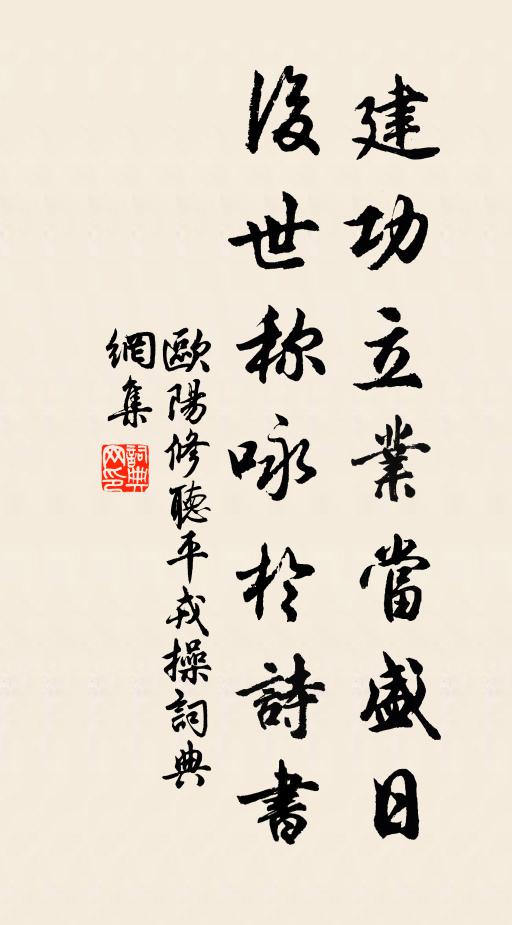 建功立業當盛日
後世称咏於詩書
歐陽修聽平戎操詞典
網集
詞典网印